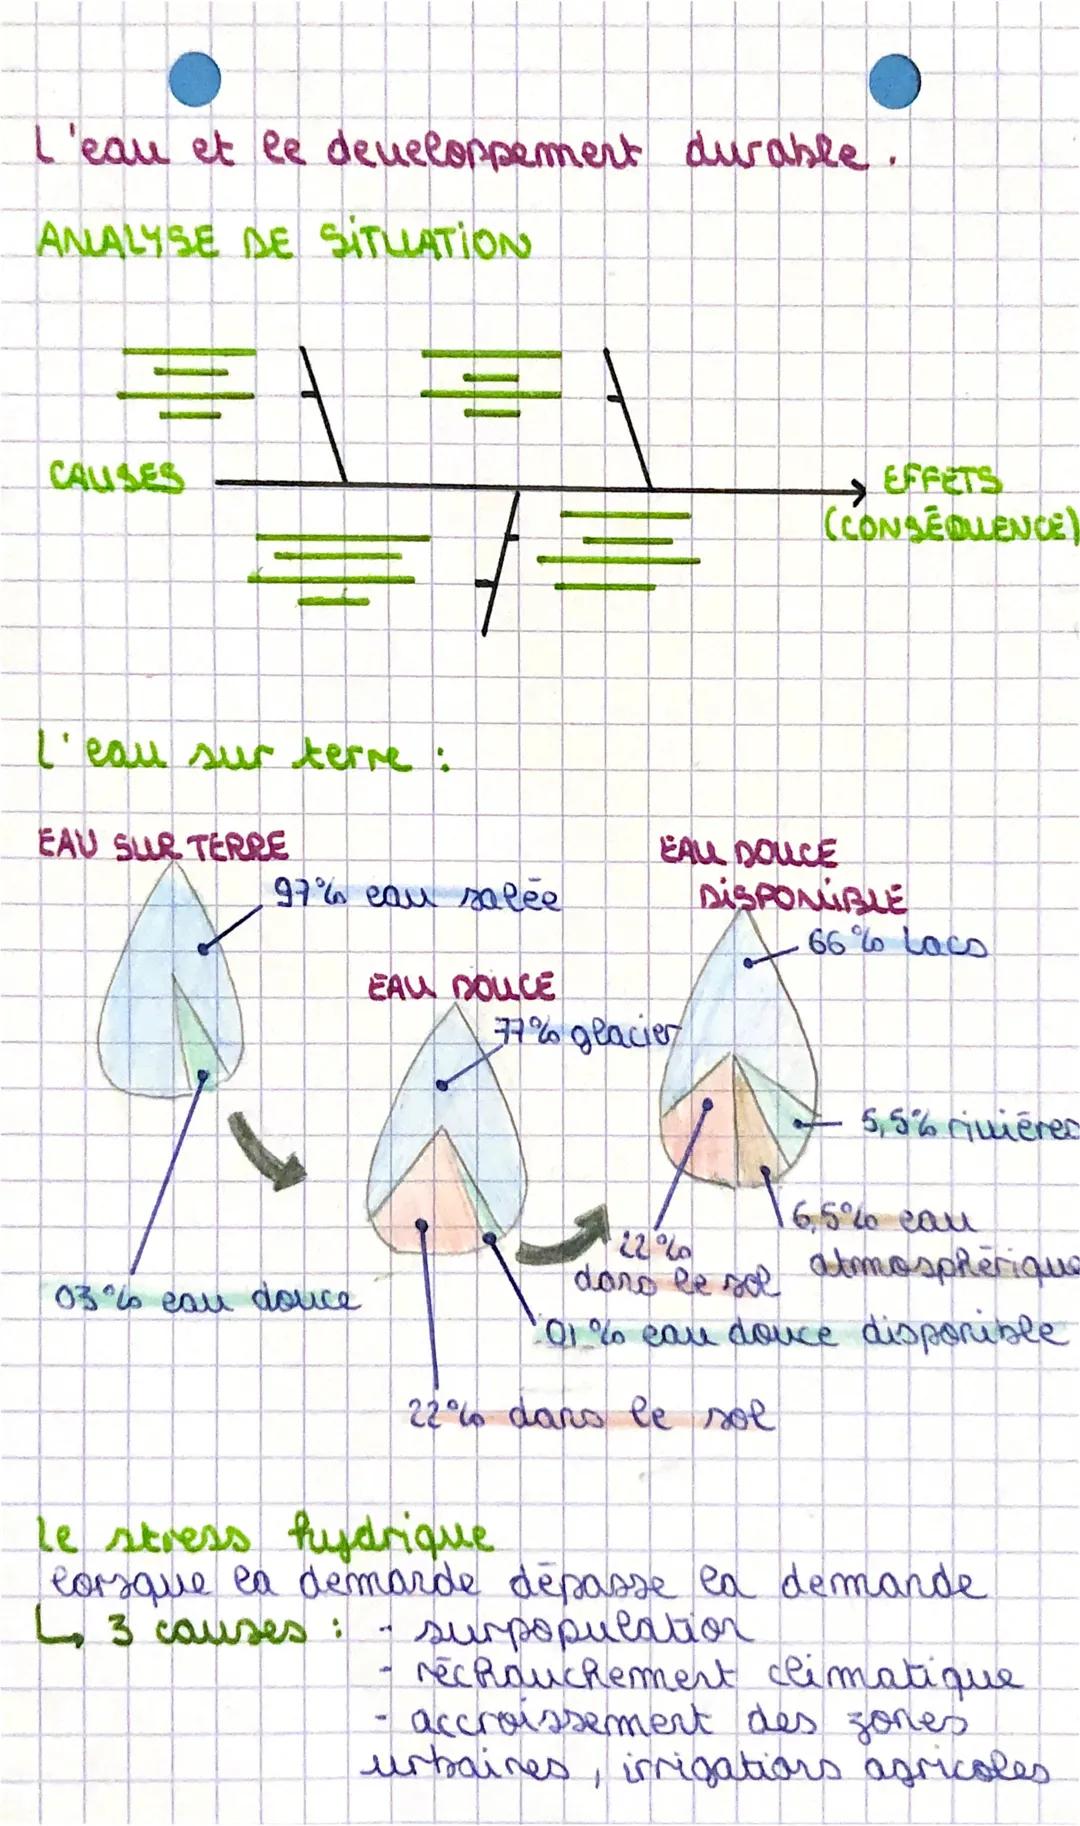 L'eau et le developpement durable.
ANALYSE DE SITUATION
CAUSES
EFFETS
(CONSÉQUENCE)
L'eau sur terre :
EAU SUR TERRE
97% eau salée
03% eau douce
EAU DOUCE
77% glacier
01% eau douce disponible
22% dans le sol
EAU DOUCE
DISPONIBLE
66% Lacs
5,5% rivières
6,5% eau
atmosphérique
22%
dans le sol
Le stress hydrique
lorsque la demande dépasse la demande
↳ 3 causes : - surpopulation
- réchauchement climatique
- accroissement des zones
urbaines, irrigations agricoles